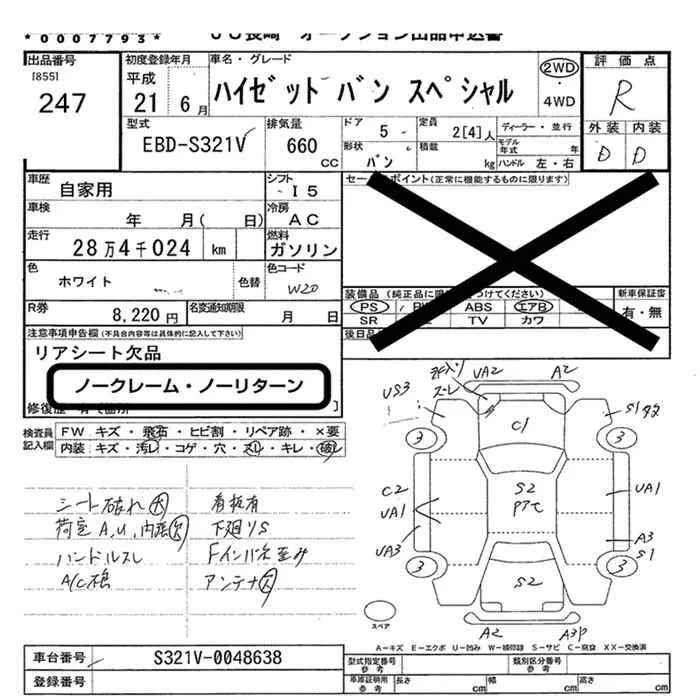 *0007793*
JU長崎 オークション出品申込書
出品番号
[855]
247
初度登録年月
平成
21 6月
車名・グレード
ハイゼット バン スペシャル
2WD
・
4WD
評価点
R
外装 内装
D D
型式
EBD-S321V
排気量
660
CC
ドア
5
定員
2[4]人
ディーラー・並行
形状
バン
積載
kg
モデル年式
年
ハンドル 左・右
車歴
自家用
シフト
I5
車検
年 月( 日)
冷房
AC
走行
28万4千024 km
燃料
ガソリン
色
ホワイト
色替
色コード
W20
R券
8,220円
名変通知期限
月 日
セールスポイント(正常に機能するものに限ります)
装備品
PS
ABS
エアB
SR
TV
カワ
新車保証書
有・無
後日品
注意事項申告欄(不具合内容等は具体的に記入して下さい)
リアシート欠品
ノークレーム・ノーリターン
修復歴
検査員
記入欄
FW キズ・飛石・ヒビ割・リペア跡・×要
内装・キズ・汚レ・コゲ・穴・スレ・キレ・破レ
シート破れ大
看板有
荷室A,U,内張欠
下廻りS
ハンドルスレ
A/C
アンテナ欠
US3
UA2
A2
C1
S1
3
3
C2
UA1
UA3
S2
UA1
A3
S1
3
3
S2
A2
スペア
A-キズ E-エクボ U-凹み W-補修跡 S-サビ C-腐食 XX-交換済
車台番号
S321V-0048638
登録番号
型式指定番号
参考
類別区分番号
参考
車庫証明用
参考
長さ
cm
幅
cm
高さ
cm